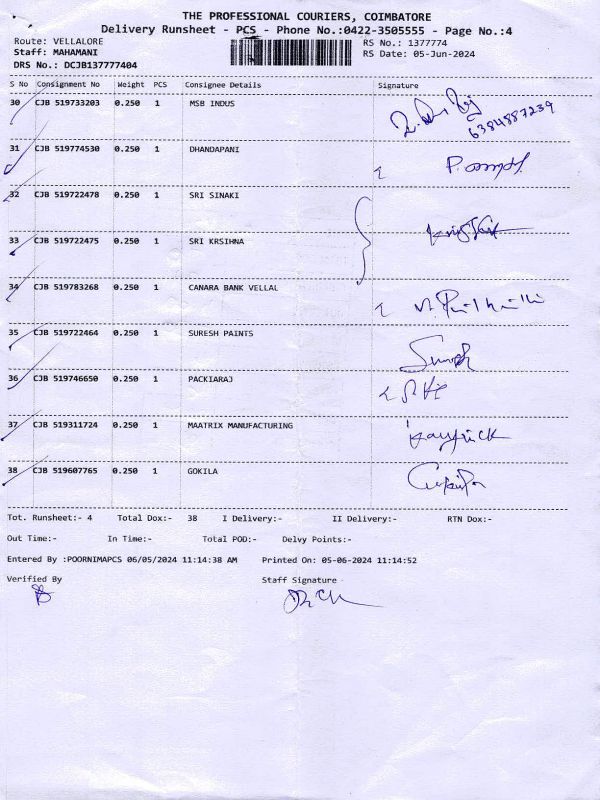 THE PROFESSIONAL COURIERS, COIMBATORE
Delivery Runsheet - PCS - Phone No.:0422-3505555 - Page No.:4
Route: VELLALORE RS No.: 1377774
Staff: MAHAMANI RS Date: 05-Jun-2024
DRS No.: DCJB137777404
S No Consignment No Weight PCS Consignee Details Signature
30 CJB 519733203 0.250 1 MSB INDUS
6384887239
31 CJB 519774530 0.250 1 DHANDAPANI
32 CJB 519722478 0.250 1 SRI SINAKI
33 CJB 519722475 0.250 1 SRI KRSIHNA
34 CJB 519783268 0.250 1 CANARA BANK VELLAL
35 CJB 519722464 0.250 1 SURESH PAINTS
36 CJB 519746650 0.250 1 PACKIARAJ
37 CJB 519311724 0.250 1 MAATRIX MANUFACTURING
38 CJB 519607765 0.250 1 GOKILA
Tot. Runsheet:- 4 Total Dox:- 38 I Delivery:- II Delivery:- RTN Dox:-
Out Time:- In Time:- Total POD:- Delvy Points:-
Entered By :POORNIMAPCS 06/05/2024 11:14:38 AM Printed On: 05-06-2024 11:14:52
Verified By Staff Signature